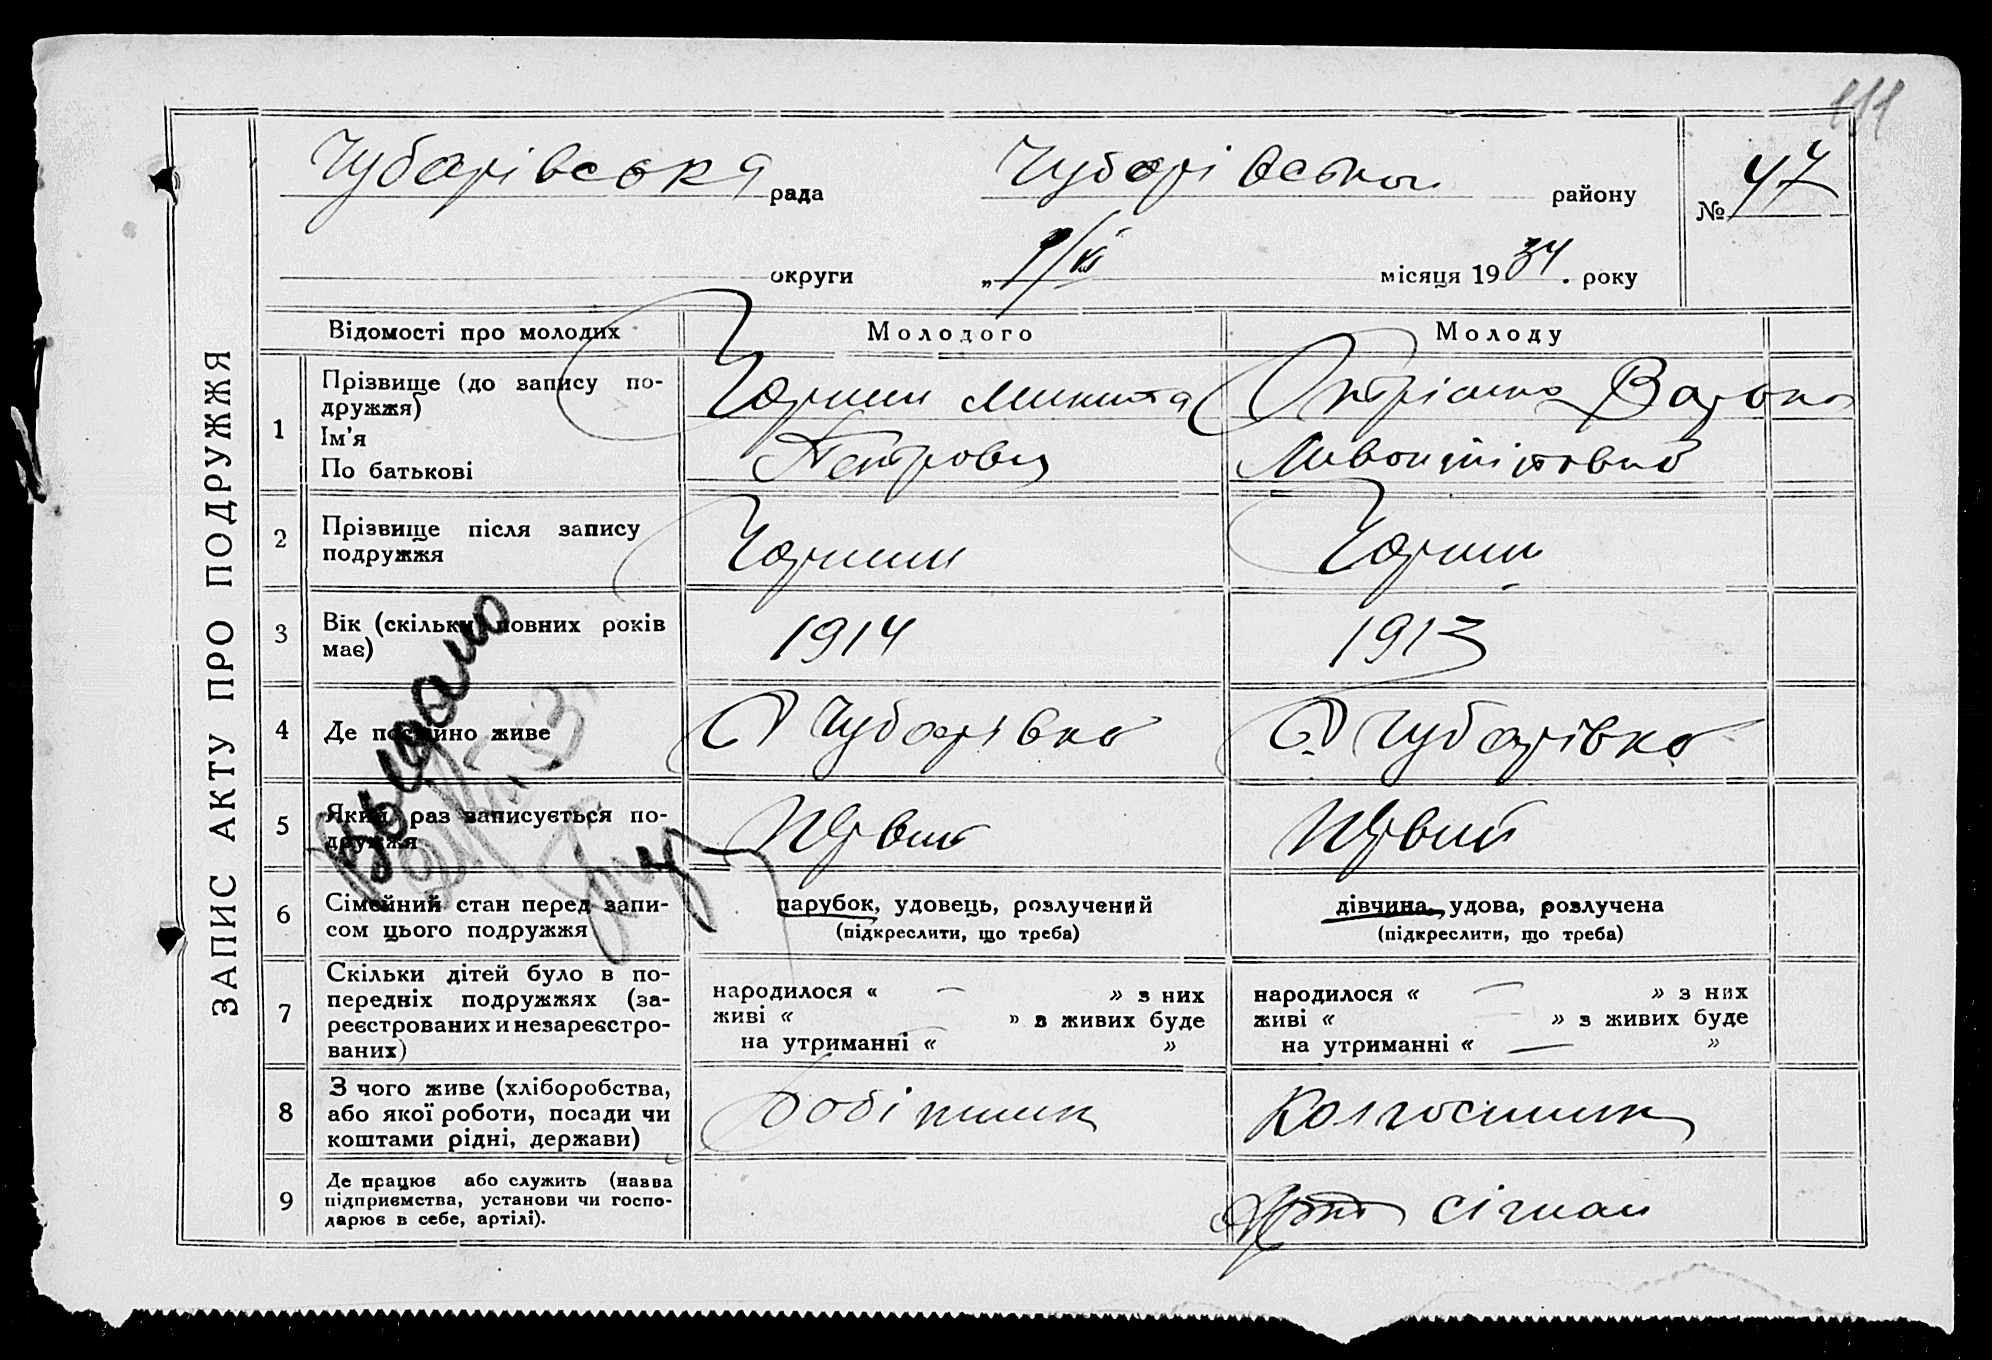 111
Чубарівська рада Чубарівськои району № 47
округи „ місяця 1934. року
ЗАПИС АКТУ ПРО ПОДРУЖЖЯ
Відомості про молодих Молодого Молоду
1 Прізвище (до запису по-
дружжя)
Ім'я
По батькові
Микита
Петрович
2 Прізвище після запису
подружжя
3 Вік (скільки повних років
має)
1914 1913
4 Де постійно живе
С Чубарівка С Чубарівка
5 Який раз записується по-
дружжя
Первий Первий
6 Сімейний стан перед запи-
сом цього подружжя
парубок, удовець, розлучений дівчина, удова, розлучена
(підкреслити, що треба) (підкреслити, що треба)
7 Скільки дітей було в по-
передніх подружжях (за-
реєстрованих и незареєстро-
ваних)
народилося « — » з них народилося « — » з них
живі « » з живих буде живі « » з живих буде
на утриманні « » на утриманні « — »
8 З чого живе (хліборобства,
або якої роботи, посади чи
коштами рідні, держави)
Робітник Колгоспник
9 Де працює або служить (назва
підприємства, установи чи госпо-
дарює в себе, артілі).
Видано